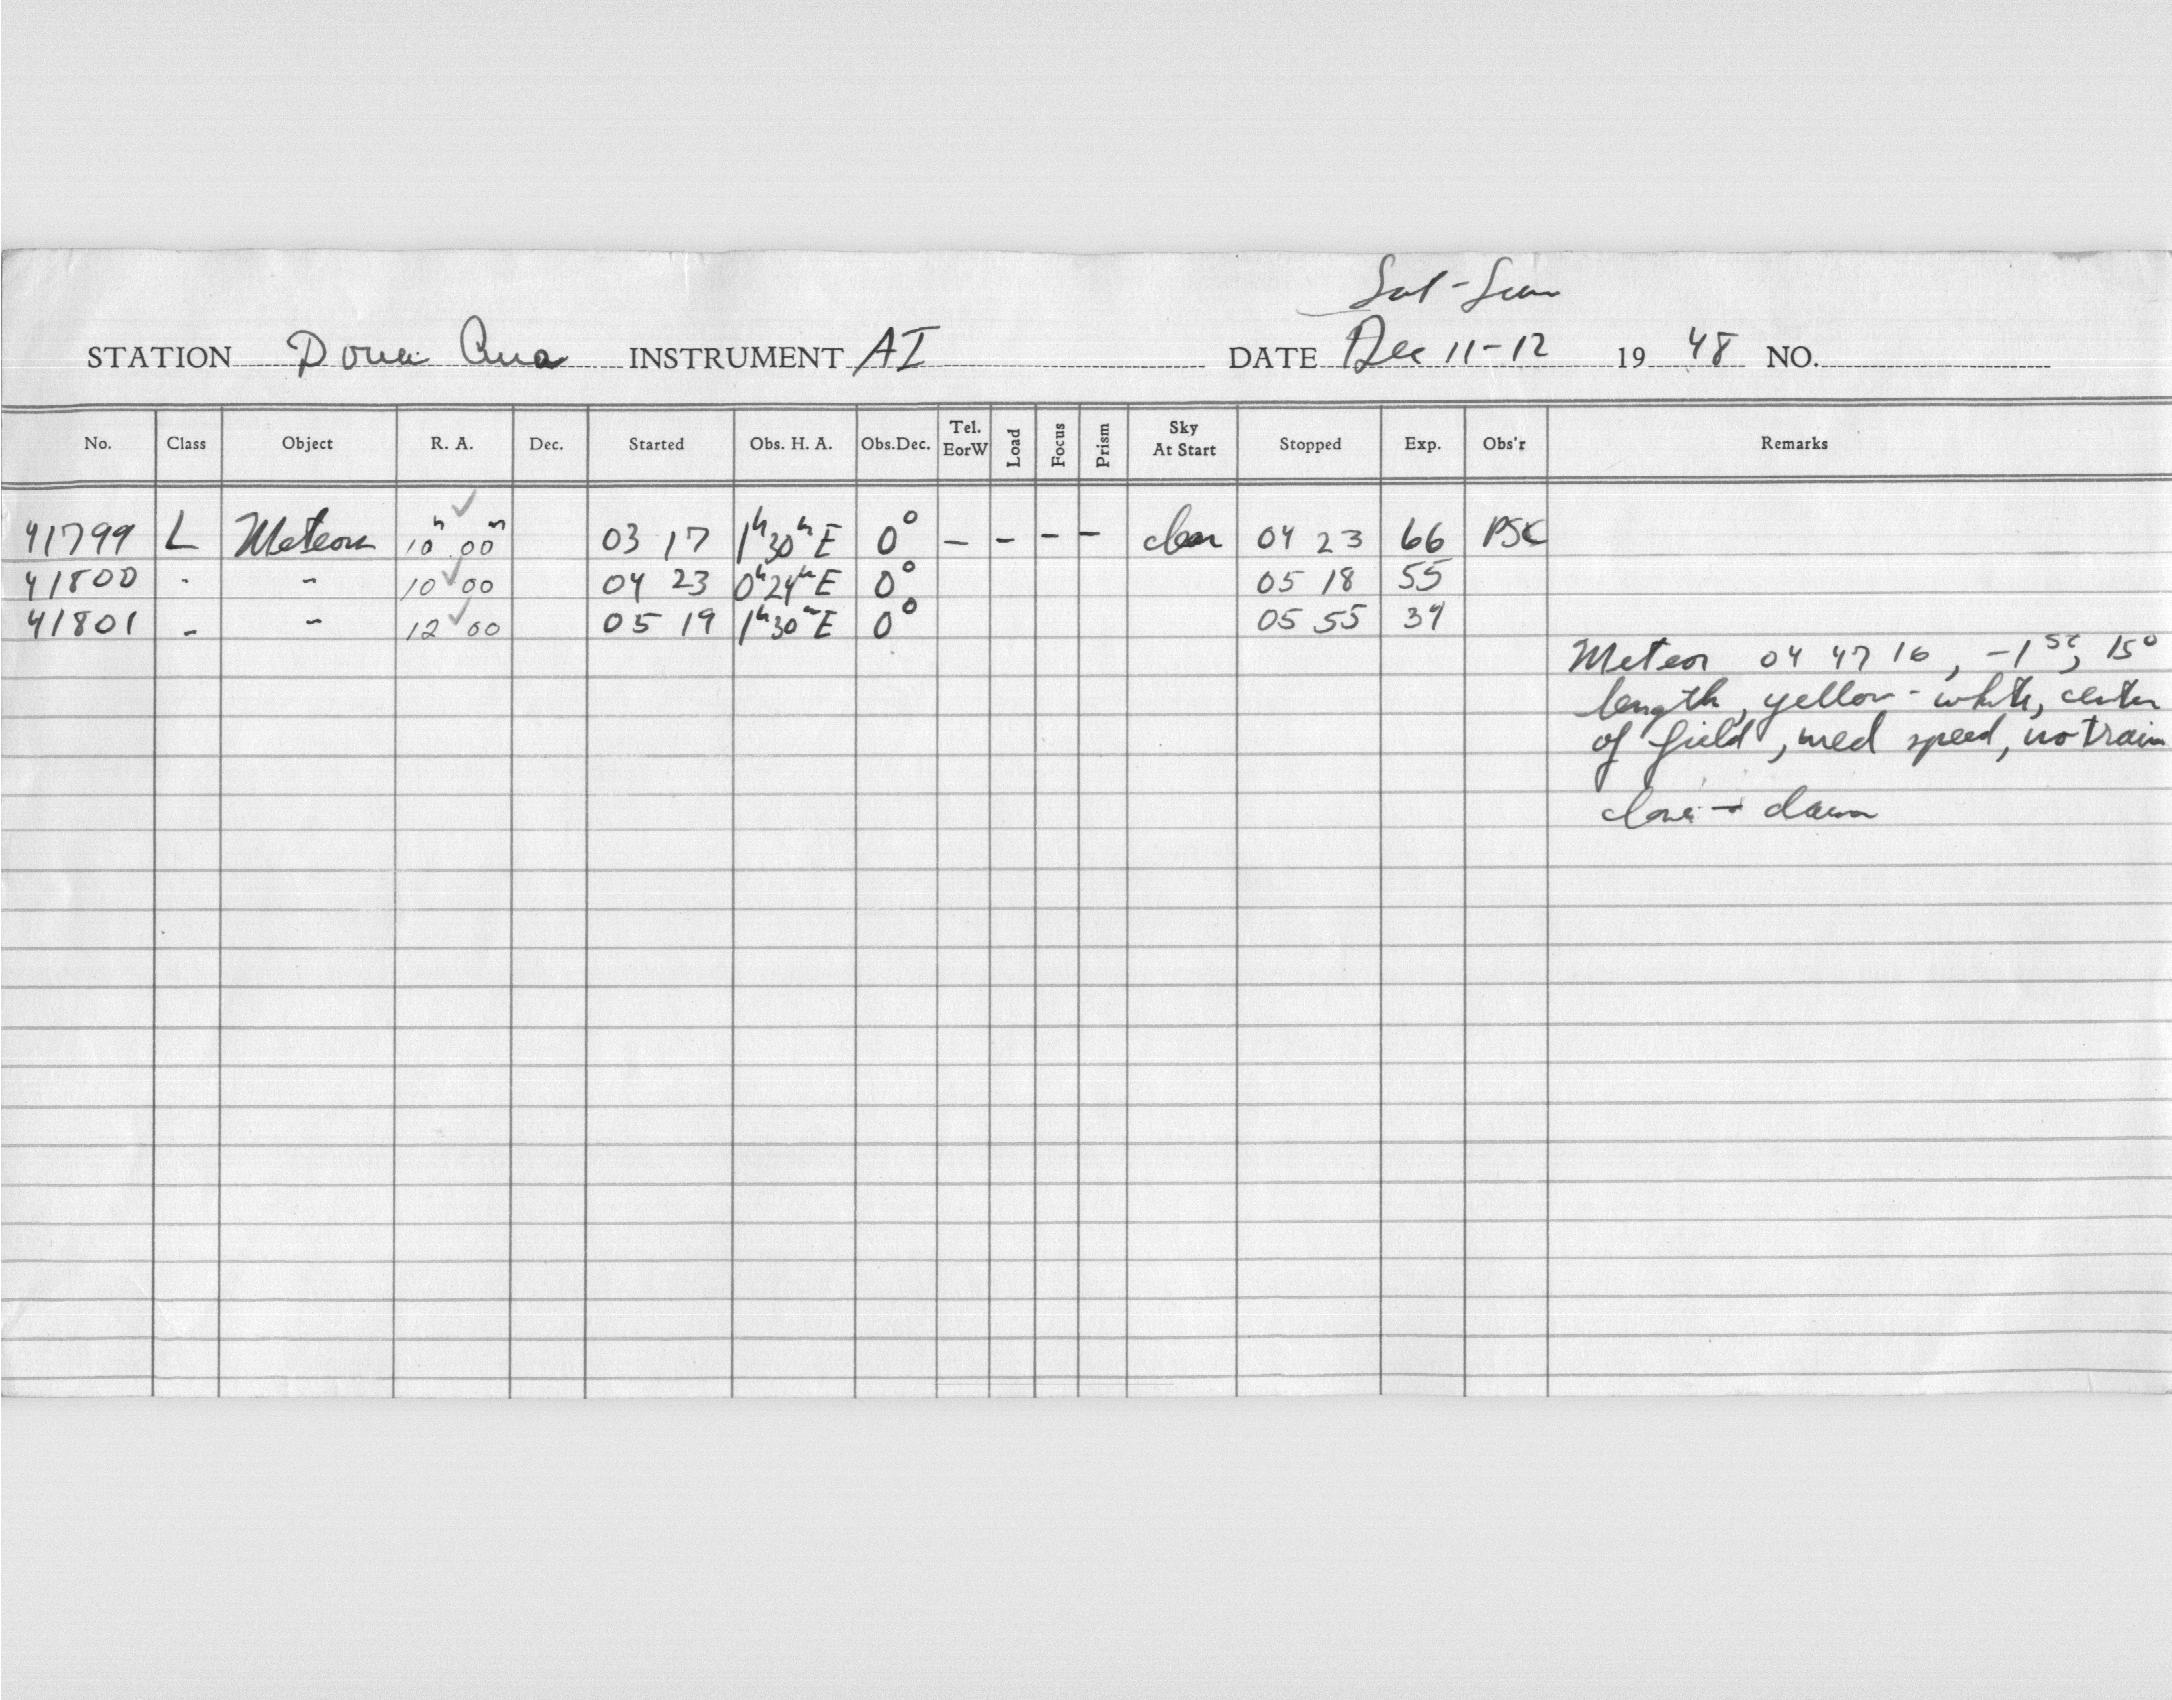 Sat - Sun
STATION Dona Ana INSTRUMENT AI DATE Dec 11-12 19 48 NO.
No. Class Object R. A. Dec. Started Obs. H. A. Obs.Dec. Tel. EorW Load Focus Prism Sky At Start Stopped Exp. Obs'r Remarks
41799 L Meteors 10h 00m 03 17 1h30mE 0° - - - - clear 04 23 66 PSC
41800 " 10 00 04 23 0h24mE 0° 05 18 55
41801 " 12 00 05 19 1h30mE 0° 05 55 34
Meteor 04 47 16, -1st, 15°
length, yellow - white, center
of field, med speed, no train
dawn